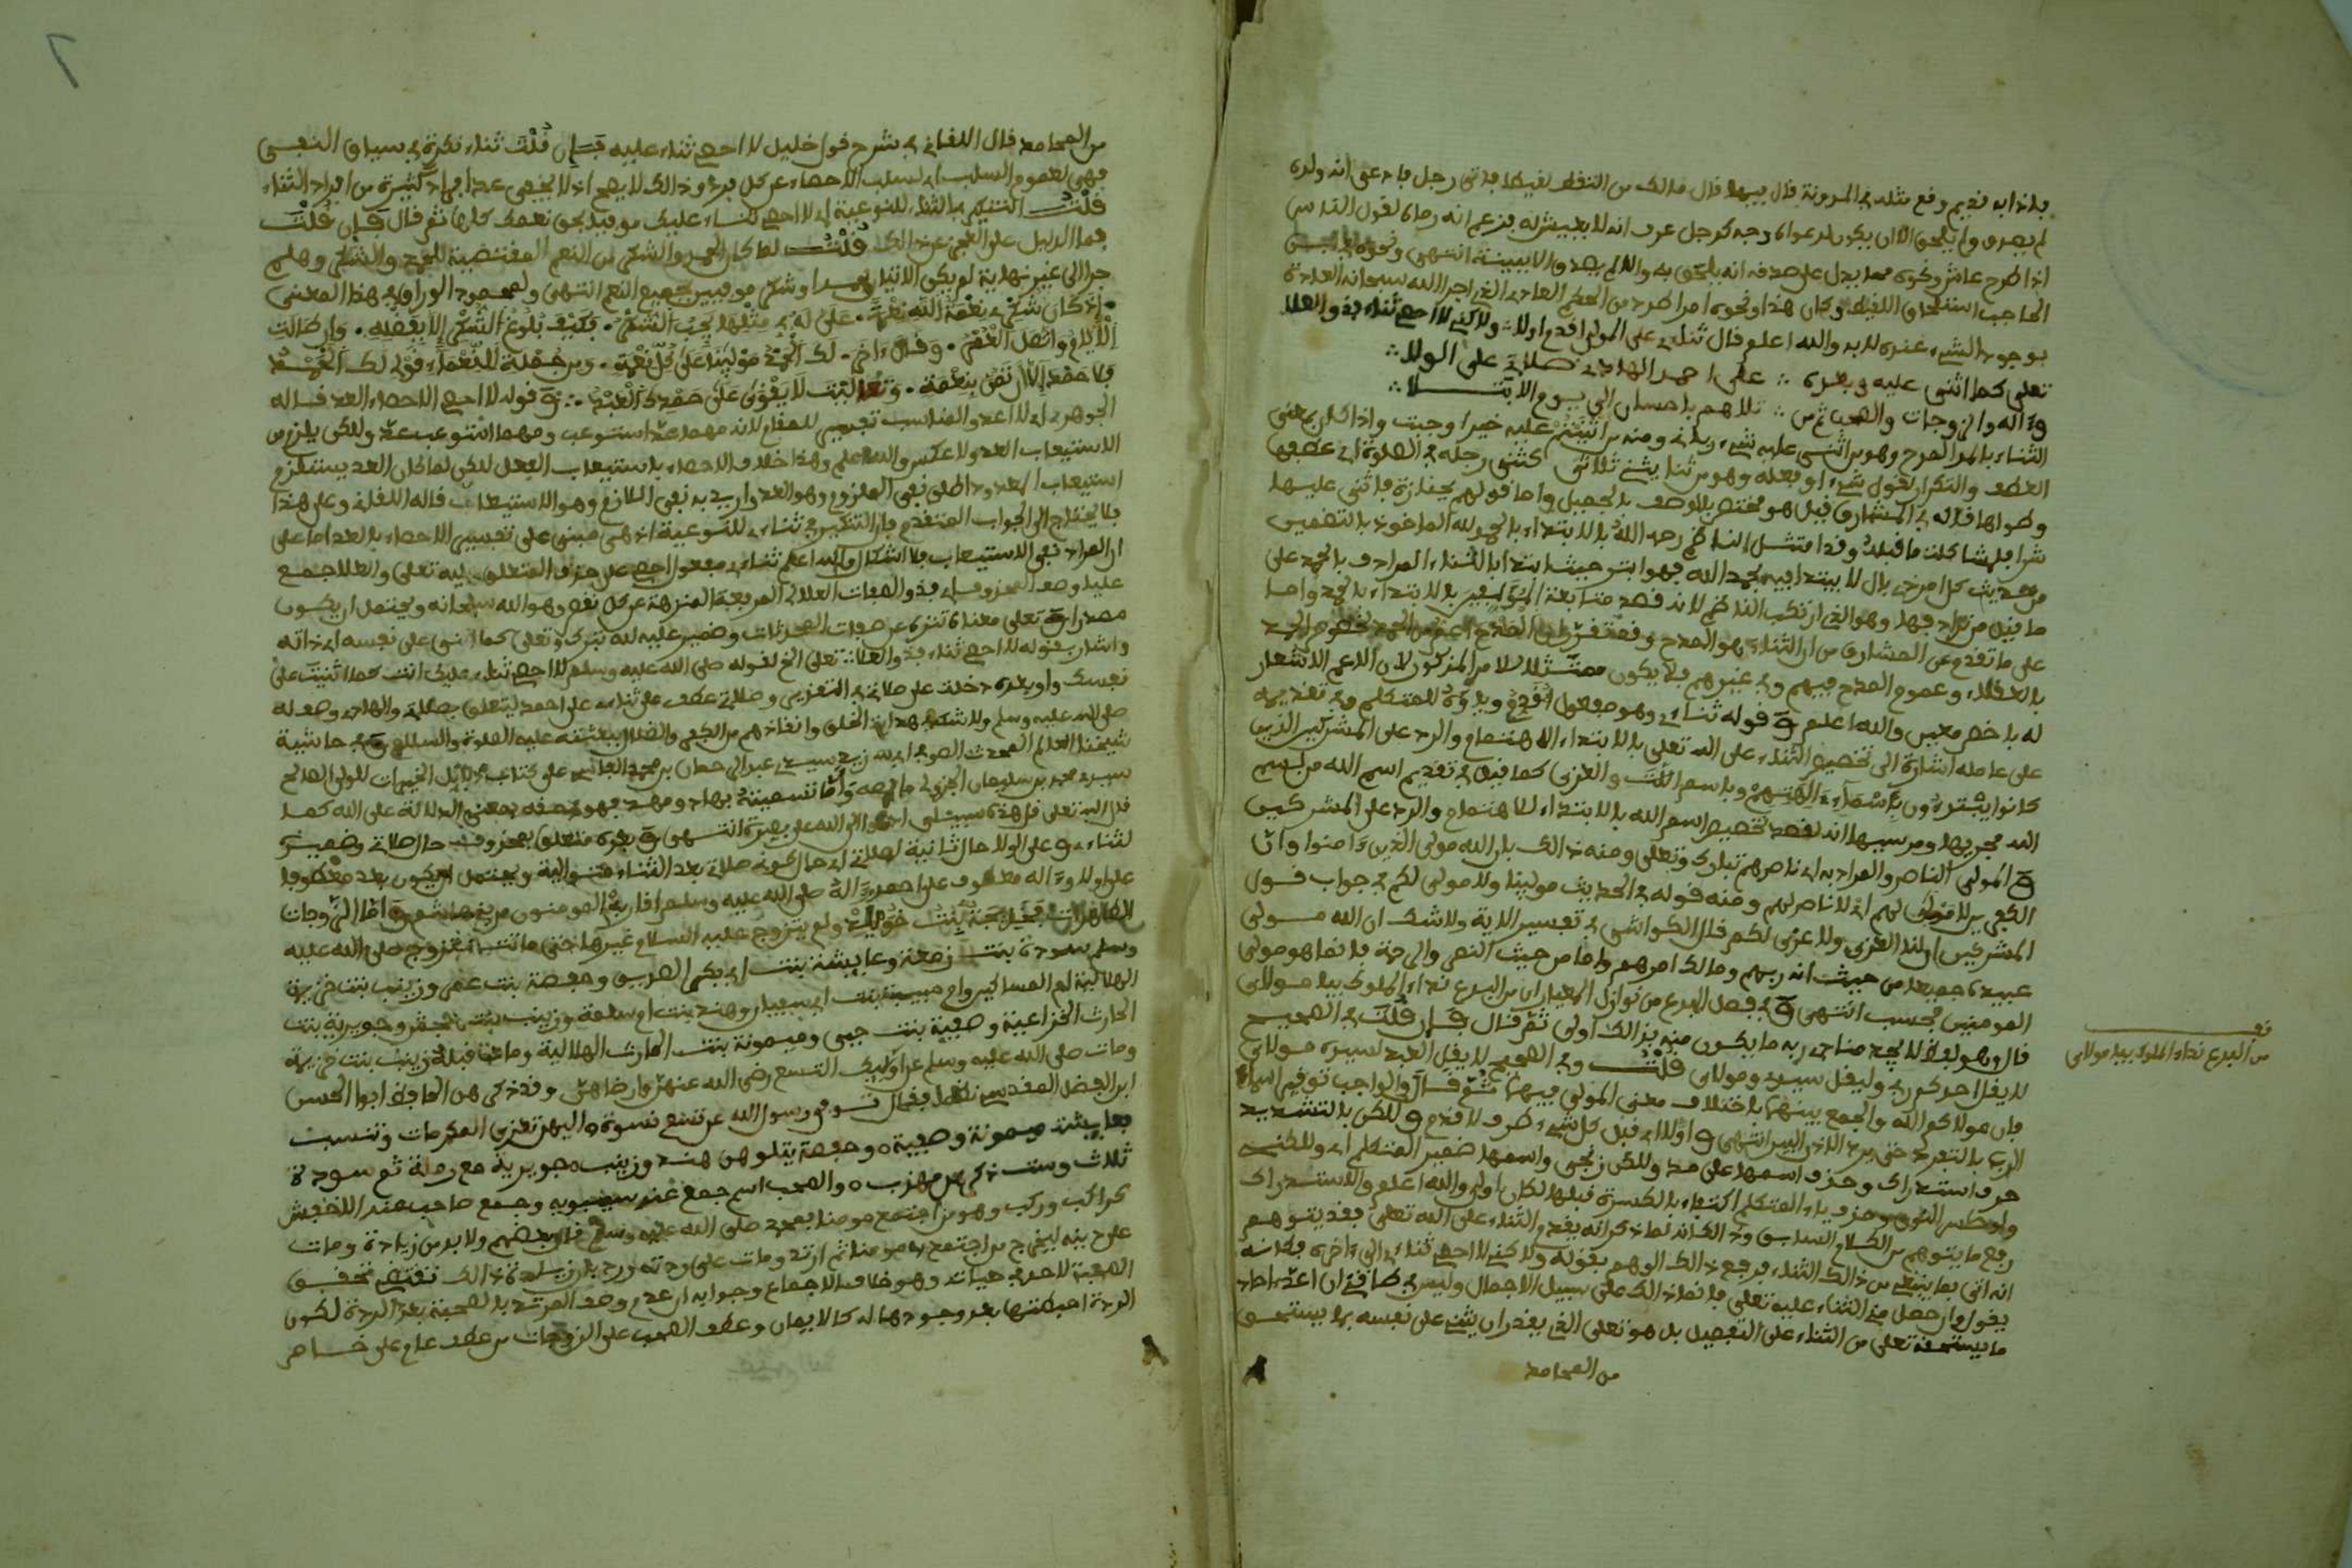 بلذا به فديم وفع مثله في المدونة فال فيها فال مالك من التفط لفيطا فاتى رجل فادعى انه ولده
لم يصدق ولم يلحق الا ان يكون لدعواه وجه كرجل عرف انه لا يعيش له فزعم انه رماه لفول الناس
اذا طرح عاش ونحوه مما يدل على صدفه انه يلحق به والا لم يصدق الا ببينة انتهى
الحاجب استلحاق اللفيط وكان هذا ونحوه امر اطرد من الحكم العادي الذي اجرا الله سبحانه العادة
بوجود الشيء عنده لا به والله اعلم فال ثناءي على المولى افدم اولا ولاكني لا احصي ثناء فذو العلا
تعلى كما اثنى عليه وبعده على احمد الهادي صلاتي على الولا
وءاله والزوجات والصحب ثم من تلاهم باحسان الى يوم الابتلا
الثناء بالمد المدح وهو من اثنى عليه شيء ومنه من اثنيتم عليه خيرا وجبت واذا كان بمعنى
العطف والتكرار تفول شيء او فعله وهو من ثنا يثني ثلاثي كثنى رجله في الصلوة اي عطفها
وطواها فاله في المشارق فيل هو مختص بالوصف بالجميل واما فولهم بجنازة فاثنى عليها
شرا فلمشاكلة ما فبله وفد امتثل الناظم رحمه الله بالابتداء بالحمد لله الماخوذ بالتضمين
من حديث كل امر ذي بال لا يبتدا فيه بحمد الله فهو ابتر حيث ابتدا بالثناء المرادف بالحمد على
ما فيل من ترادفهما وهو الذي ارتكب الناظم لانه فصد متابعة بالابتداء بالحمد واما
على ما تفدم عن المشارق من ان الثناء هو المدح
بالعفلاء وعموم المدح فيهم وفي غيرهم فلا يكون ممتثلا للامر المذكور لان الاعم لا اشعار
له باخص معين والله اعلم وفوله ثناءي وهو مفعول افدم وياؤه للمتكلم وفي تفديمه
على عامله اشارة الى تخصيص الثناء على الله تعلى بالابتداء للاهتمام والرد على المشركين الذين
كانوا يبتدءون باسماء ءالهتهم وباسم اللات والعزى كما فيل في تفديم اسم الله من بسم
الله مجريها ومرسيها انه لفصد تخصيص اسم الله بالابتداء للاهتمام والرد على المشركين
و المولى الناصر والمراد به اي ناصرهم تبارك وتعلى ومنه ذالك بان الله مولى الذين ءامنوا وان
الكفرين لا مولى لهم اي لا ناصر لهم ومنه فوله في الحديث مولينا ولا مولى لكم في جواب فول
المشركين ان لنا العزى ولا عزى لكم فال الكواشي في تفسير الاية ولا شك ان الله مولى
عبيده جميعا من حيث انه ربهم ومالك امرهم واما من حيث النصر والرحمة فانما هو مولى
المومنين فحسب انتهى و في فصل البدع من نوازل المعيار ان من البدع نداء المملوك بيا مولاي
فال وهو لفظ لا يجد مناجي ربه ما يكون منه بذالك اولى ثم فال فإن فلت في الصحيح
لا يفل احدكم ربي وليفل سيدي ومولاي فلت وفي الصحيح لا يفل العبد لسيده مولاي
فان مولاكم الله والجمع بينهما باختلاف معنى المولى فيهما ثم فال والواجب توفير اسماء
الرب بالتفرد حتى يرد الاذن البين انتهى و اولا اي فبل كل شيء ظرف لافدم و لاكن بالتشديد
حرف استدراك وحذف اسمها على حد ولاكن زنجي واسمها ضمير المتكلم اي ولاكنني
وحذف ياء المتكلم اكتفاء بالكسرة فبلها لكان اولى والله اعلم والاستدراك
رفع ما يتوهم من الكلام السابق وذالك انه لما ذكر انه يفدم الثناء على الله تعلى فد يتوهم
انه اتى بما ينبغي من ذالك الثناء فرفع ذالك الوهم بفوله ولاكني لا احصي ثناء الى ءاخره فكانه
يفول وان حصل مني الثناء عليه تعلى فانما ذالك على سبيل الاجمال وليس في طافتي ان اعد احاد
ما يستحفه تعلى من الثناء على التفصيل بل هو تعلى الذي يفدر ان يثني على نفسه بما يستحق
من المحامد
من البدع نداء المملوك بيا مولاي
من المحامد فال اللفاني في شرح فول خليل لا احصي ثناء عليه فإن فلت ثناء نكرة في سياق النفي
فهي لعموم السلب اي لسلب الاحصاء عن كل فرد وذالك لا يصح اذ لا يخفى عد افراد كثيرة من افراد الثناء
فلت التنكير في الثناء للنوعية اي لا احصي ثناء عليك موفيا بحق نعمك كلها ثم فال فإن فلت
فما الدليل على العجز عن ذالك فلت لما كان الحمد والشكر من النعم المفتضية للحمد والشكر وهلم
جرا الى غير نهاية لم يكن الاتيان بحمد او شكر موفيين بجميع النعم انتهى ولمحمود الوراق في هذا المعنى
إذا كان شكري نعمة الله نعمة علي له في مثلها يجب الشكر فكيف بلوغ الشكر إلا بفضله وإن طالت
الأيام واتصل العمر وفال ءاخر لك الحمد مولينا على كل نعمة ومن جملة النعماء فولي لك الحمد
فلا حمد إلا أن تمن بنعمة تعاليت لا يفوى على حمدك العبد و فوله لا احصي الاحصاء العد فاله
الجوهري اي لا اعد والمناسب تفسير للمفام لانه مهما عد استوعب ومهما استوعب عد ولاكن يلزم من
الاستيعاب العد ولا عكس والله اعلم وهذا خلاف الاحصاء بالاستيعاب الفعل لاكن لما كان العد يستلزم
استيعاب المعدود اطلق نفي الملزوم وهو العد واريد به نفي اللازم وهو الاستيعاب فاله اللفاني وعلى هذا
فلا يحتاج الى الجواب المتفدم فان التنكير في ثناء للنوعية اذ هي مبني على تفسير الاحصاء بالعد اما على
ان المراد نفي الاستيعاب فلا اشكال والله اعلم ثناء مفعول احصي على حذف المتعلق اليه تعلى والعلا جمع
عليا وصف لمحذوف اي فذو الصفات العلا اي المرفعة المنزهة عن كل نفص وهو الله سبحانه ويحتمل ان يكون
مصدرا و تعلى معناه تنزه عن صفات المحدثات وضمير عليه لله تبارك وتعلى كما اثنى على نفسه اي ذاته
واشار بفوله لا احصي ثناء فذو العلا تعلى الخ لفوله صلى الله عليه وسلم لا احصي ثناء عليك انت كما اثنيت على
نفسك وواو وبعده دخلت على صلاتي في التفدير وصلاتي عطف على ثناءي على احمد ليتعلق بصلاتي والهادي وصف له
صلى الله عليه وسلم ولا شك في هداية الخلق وانفاذهم من الكفر والضلال ببعثته عليه الصلوة والسلام و في حاشية
شيخنا العالم المحدث الصوفي ابي زيد سيدي عبد الرحمان بن محمد الفاسي على كتاب دلائل الخيرات للولي الصالح
سيدي محمد بن سليمان الجزولي ما نصه واما تسميته بهاد ومهد فهو وصفه بمعنى الدلالة على الله كما
فال الله تعلى فل هذه سبيلي ادعوا الى الله على بصيرة انتهى و بعده متعلق بمحذوف حال صلاتي وضميره
لثناءي و على الولا حال ثانية لصلاتي اي حال كونه صلاتي بعد الثناء متوالية ويحتمل ان يكون بعد معطوفا
على اولا و ءاله معطوف على احمد وءاله صلى الله عليه وسلم افاربه المومنون من بني هاشم و اما الزوجات
الطاهرات فخديجة بنت خويلد ولم يتزوج عليه السلام غيرها حتى ماتت فتزوج صلى الله عليه
وسلم سودة بنت زمعة وعايشة بنت ابي بكر الصديق وحفصة بنت عمر وزينب بنت خزيمة
الهلالية ام المساكين وام حبيبة بنت ابي سفيان وهند بنت ام سلمة وزينب بنت جحش وجويرية بنت
الحارث الخزاعية وصفية بنت حيي وميمونة بنت الحارث الهلالية وماتت فبله زينب بنت خزيمة
ومات صلى الله عليه وسلم عن اولئك التسع رضي الله عنهن وارضاهن وفد ذكرهن الحافظ ابو الحسن
ابن الفضل المفدسي نظما ففال توفي رسول الله عن تسع نسوة اليهن تعزى المكرمات وتنسب
بعايشة ميمونة وصفية وحفصة يتلوهن هند وزينب جويرية مع رملة ثم سودة
ثلاث وست ذكرهن مهذب والصحب اسم جمع عند سيبويه وجمع صاحب عند الاخفش
كراكب وركب وهو من اجتمع مومنا بمحمد صلى الله عليه وسلم فال بعضهم ولا بد من زيادة ومات
على دينه ليخرج من اجتمع به مومنا ثم ارتد ومات على ردته ورد بان زيادة ذالك تفتضي تحفق
الصحبة لاحد في حياته وهو خلاف الاجماع وجوابه ان عدم وصف المرتد بالصحبة بعد الردة لكون
الردة احبطتها بعد وجودها له كالايمان وعطف الصحب على الزوجات من عطف عام على خاص